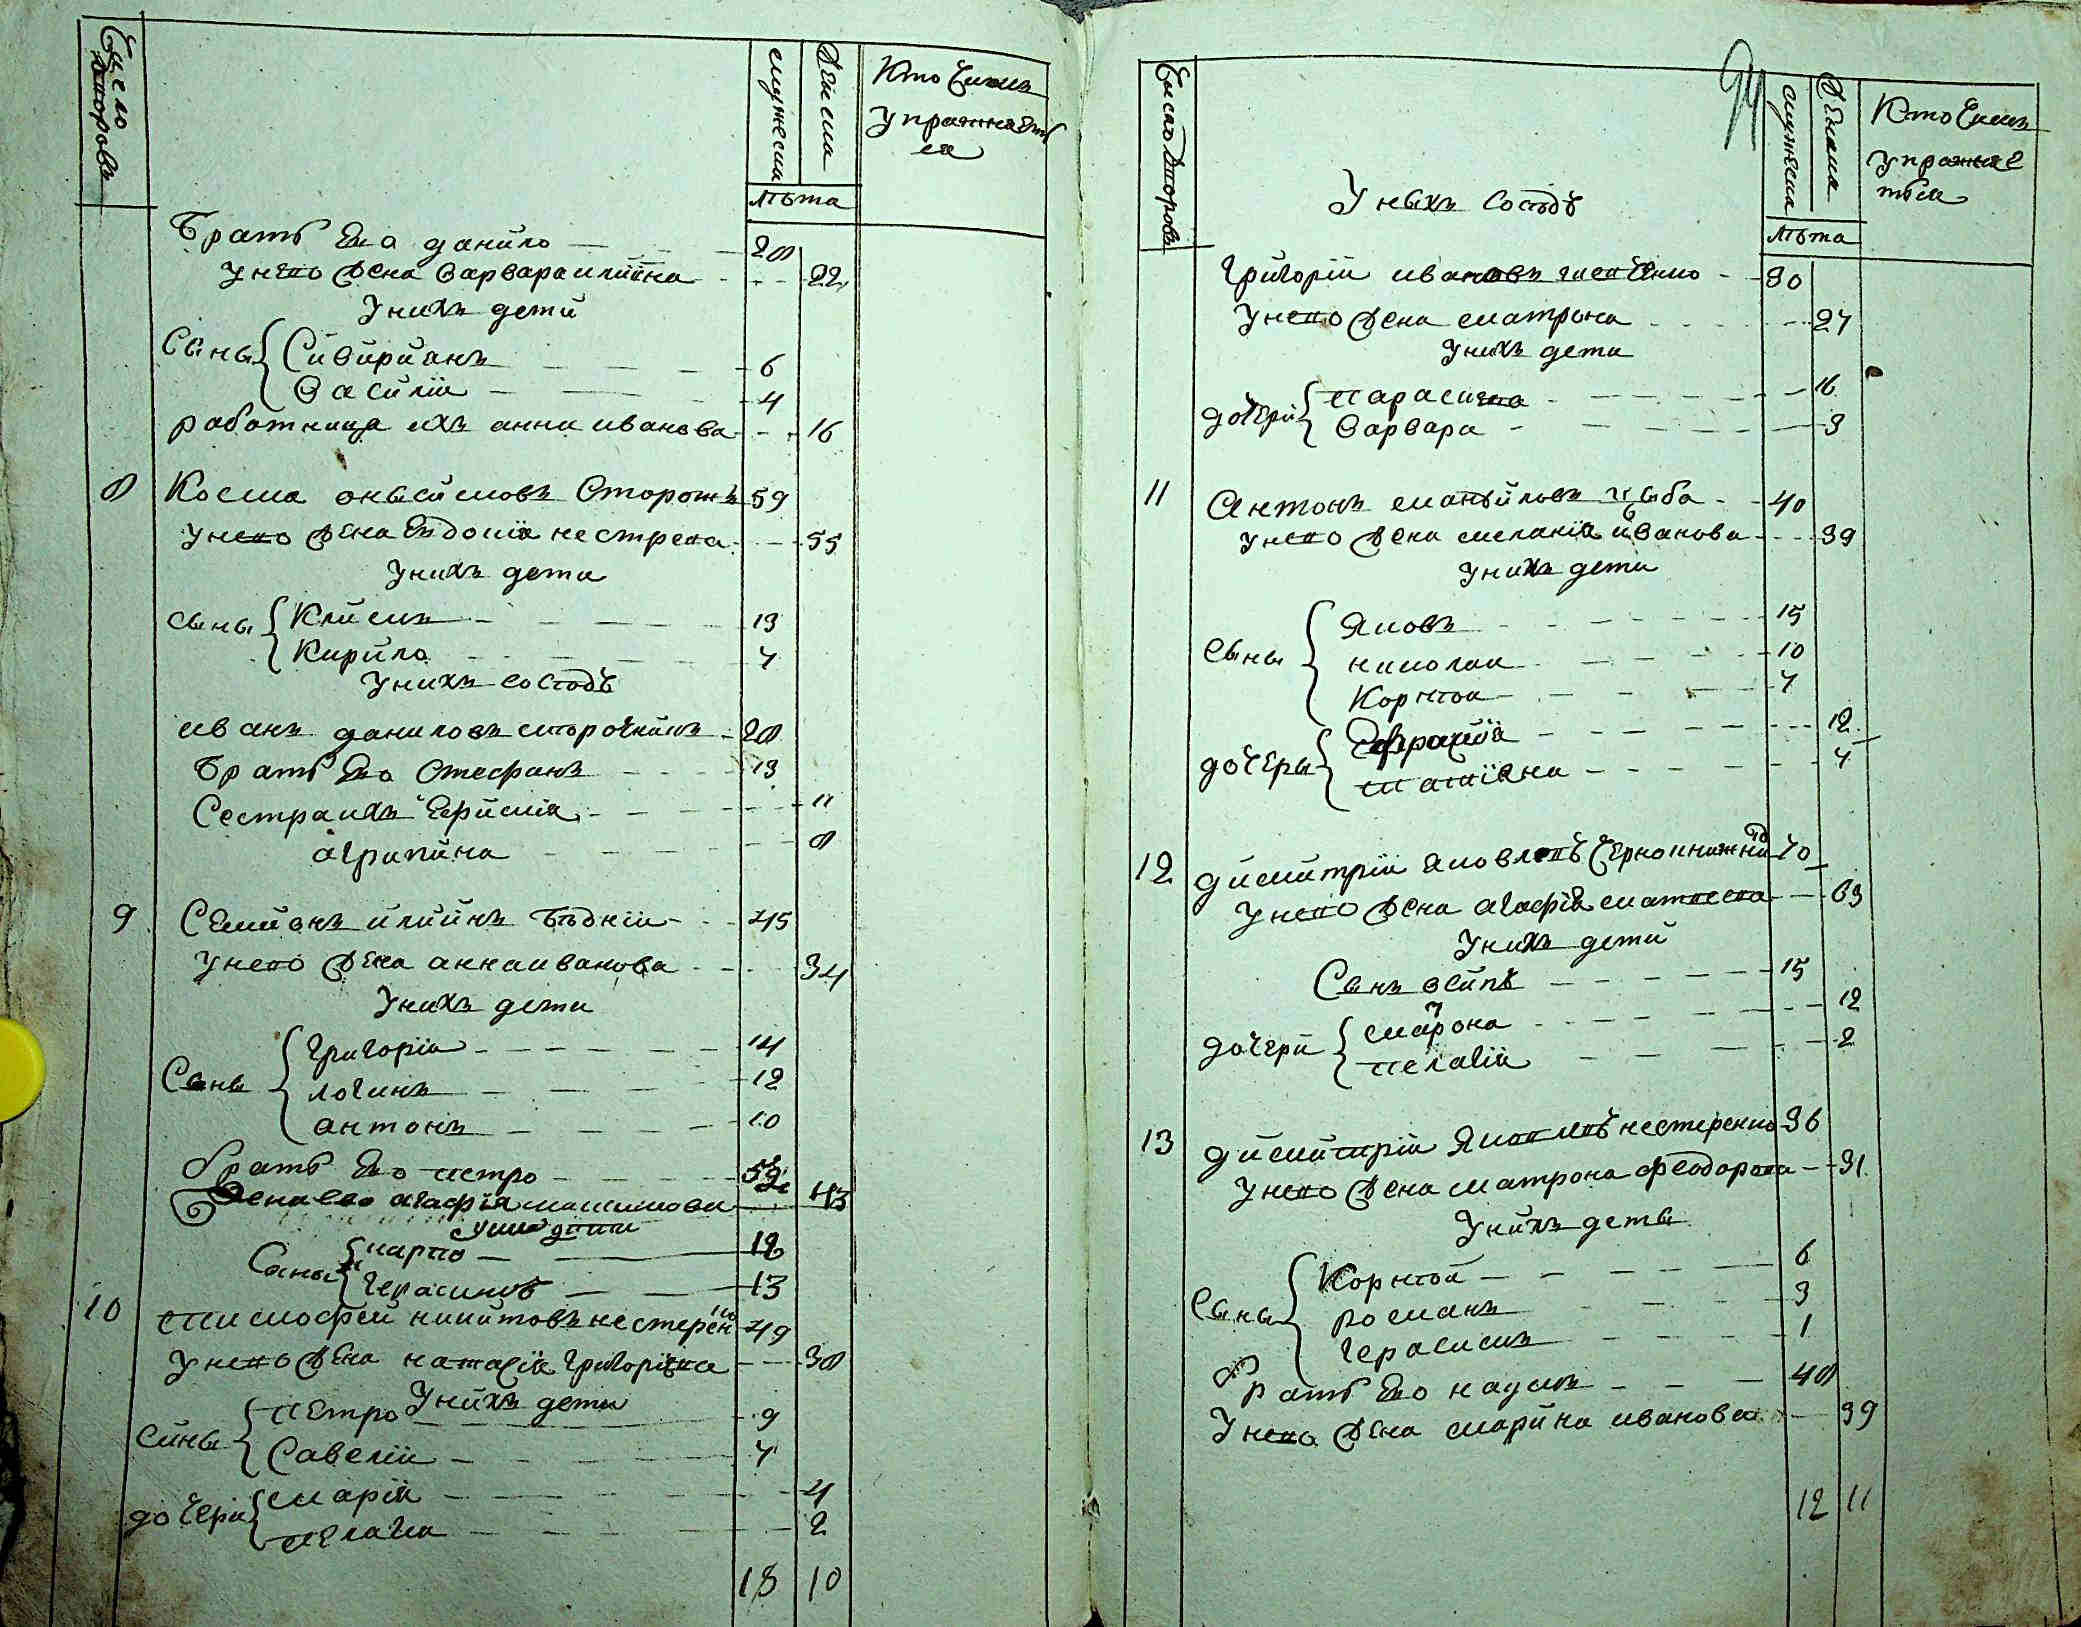 Число дворовъ
мужеска
женска
лѣта
Кто Ѣимъ
упражнѧет
сѧ
братъ Его данило 28
унего жена варвара илиина 22
унихъ дети
Сыны Сивириѧнъ 6
василiи 4
работница ихъ анна иванова 16
8 Косма онысимовъ Сторожъ 59
унего жена Евдокiѧ нестрева 55
унихъ дети
сыны Климъ 13
Кирило 7
унихъ соседъ
иванъ даниловъ 28
братъ Его Стефанъ 13
Сестра ихъ 11
агрипина 8
9 Семионъ илиинъ бѣднiи 45
унего жена анна иванова 34
унихъ дети
Сыны григорiи 14
логинъ 12
антонъ 10
братъ Его петро
жена его агафiѧ максимова 43
дети
Сыны карпо 12
герасимъ 13
10 тимофей никитовъ нестеренко 49
унего жена наталiѧ григориева 38
унихъ дети
сины петро 9
Савелiи 7
дочери марiѧ 4
пелагиѧ 2
18 10
94
Число дворовъ
мужеска
женска
лѣта
Кто Ѣимъ
упражнѧе
тьсѧ
у ныхъ соседъ
григорiй ивановъ 30
унего жена матрона 27
унихъ дети
дочери параскева 16
варвара 3
11 Антонъ маныйловъ цыба 40
унего жена меланiѧ иванова 39
унихъ дети
сыны Яковъ 15
николаи 10
Корнѣи 7
дочеры Ефросинiѧ 12
татиѧна 4
12 димитрiи Яковлевъ Чернокнижний 70
унего жена агафiѧ матвеева 63
унихъ дети
Сынъ осипъ 15
дочери матрона 12
пелагiѧ 2
13 димитрiи Яковлевъ нестеренко 36
унего жена матрона феодорова 31
унихъ деты
Сыны Корнѣи 6
романъ 3
герасимъ 1
братъ Его наумъ 48
унего жена марина иванова 39
12 11